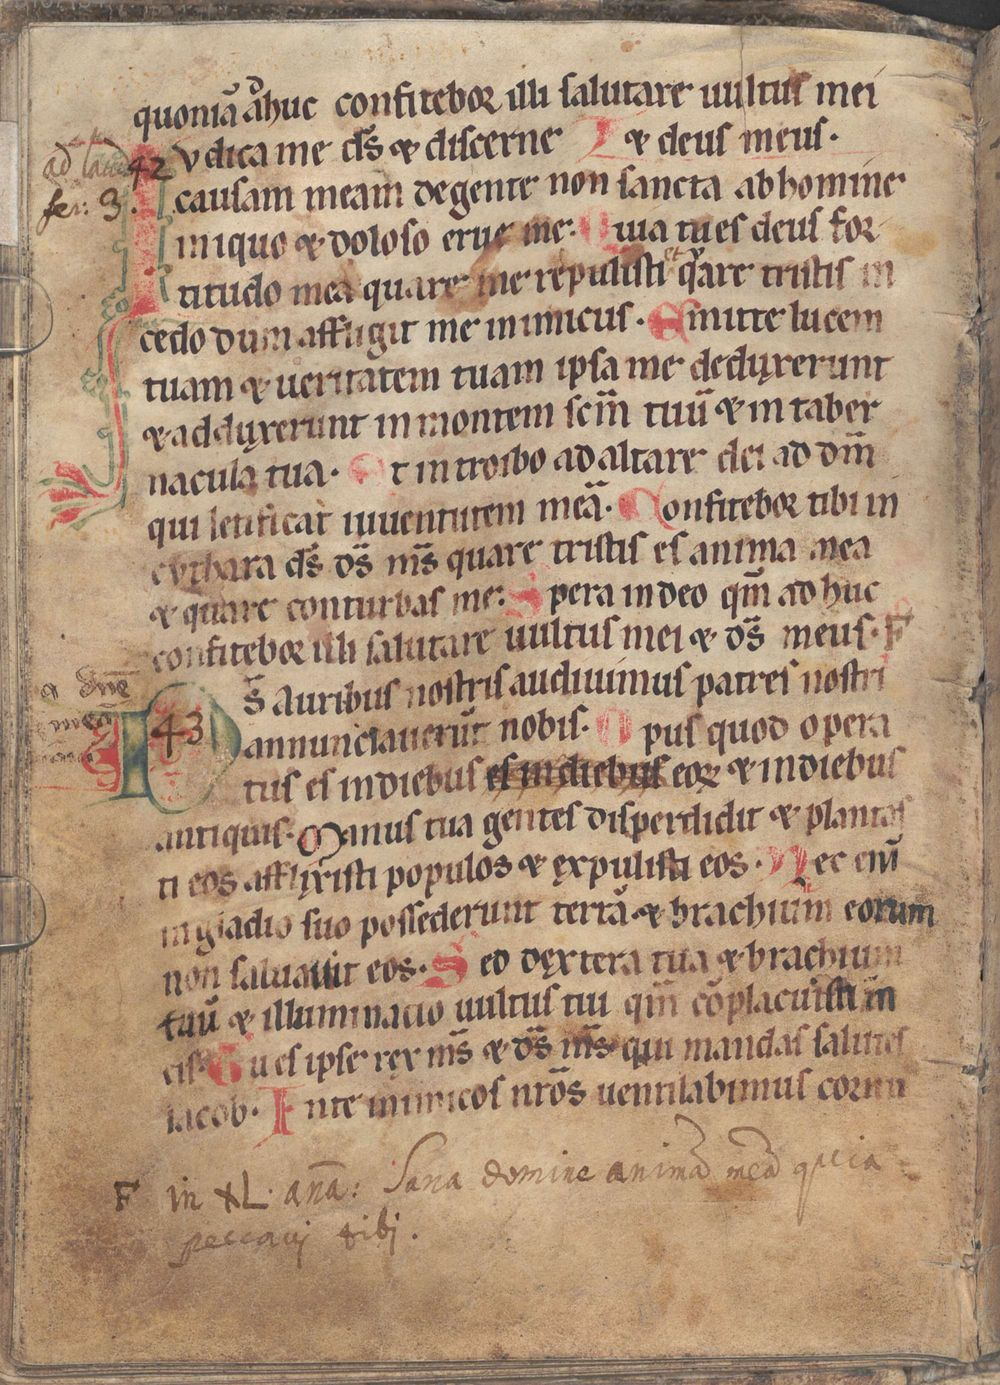 quoniā adhuc confitebor illi salutare uultus mei
Iudica me ds̄ & discerne & deus meus.
causam meam de gente non sancta ab homine
iniquo & doloso erue me. Quia tu es deus for
titudo mea quare me repulisti et qare tristis in
cedo dum affligit me inimicus. Emitte lucem
tuam & ueritatem tuam ipsa me deduxerunt
& adduxerunt in montem scm̄ tuū & in taber
nacula tua. Et introibo ad altare dei ad dm̄
qui letificat iuuentutem meā. Confitebor tibi in
cythara ds̄ ds̄ ms̄ quare tristis es anima mea
& quare conturbas me. Spera in deo qm̄ ad huc
confitebor illi salutare uultus mei & ds̄ meus. F
Ds̄ auribus nostris audiuimus patres nostri
annunciauerūt nobis. Opus quod opera
tus es in diebus es in diebus eoꝝ & in diebus
antiquis. Manus tua gentes disperdidit & plantas
ti eos afflixisti populos & expulisti eos. Nec enī
in gladio suo possederunt terrā & brachium eorum
non saluauit eos. Sed dextera tua & brachium
tuū & illuminatio uultus tui qm̄ cōplacuisti in
eis. Tu es ipse rex ms̄ & ds̄ ms̄ qui mandas salutes
iacob. In te inimicos nrōs uentilabimus cornu
F in XL. anā: Sana domine animā meā quia
peccavj tibj.
ad laud
fer: 3.
42
43